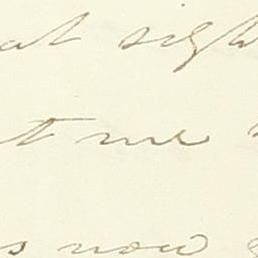 at sigh
t me
s now